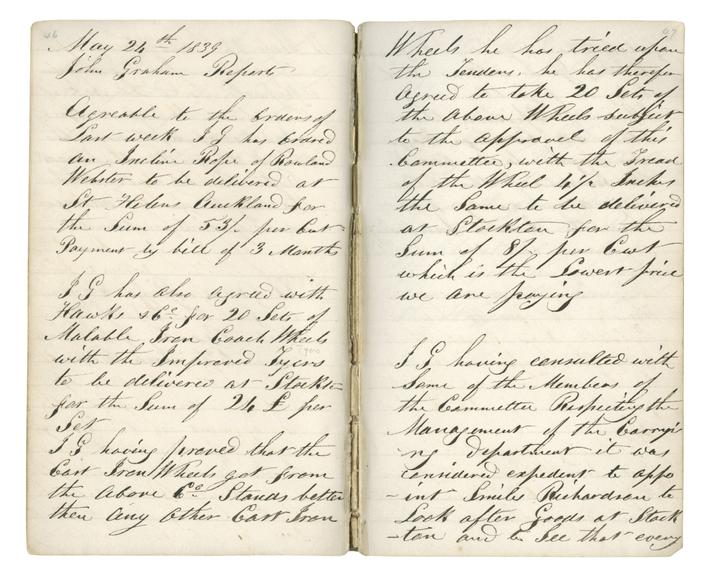 46
May 24th 1839
John Graham Reports
Agreable to the Orders of
Last week J G has Ordred
an Incline Rope of Rowland
Webster to be delivered at
St Helens Auckland for
the Sum of 53/- per Cwt
Payment by bill of 3 Months
J G has also agreed with
Hawks & Co. for 20 Sets of
Malable Iron Coach Wheels
with the Improved Tyers
to be delivered at Stockt-
for the Sum of 24 £ per
Set
J G having proved that the
Cast Iron Wheels got from
the above Co Stands better
then any other Cast Iron
47
Wheels he has tried upon
the Tenders, he has therefor
agreed to take 20 Sets of
the above Wheels subject
to the approval of this
Committee, with the Tread
of the Wheel 4 1/2 Inches
the Same to be delivered
at Stockton for the
Sum of 8/- per Cwt
which is the Lowest price
we are paying
J G having consulted with
Some of the Members of
the Committee Respecting the
Management of the Carryi
-ng department it was
considered expedent to appo
-int Smiles Richardson to
Look after Goods at Stock
-ton and to See that every